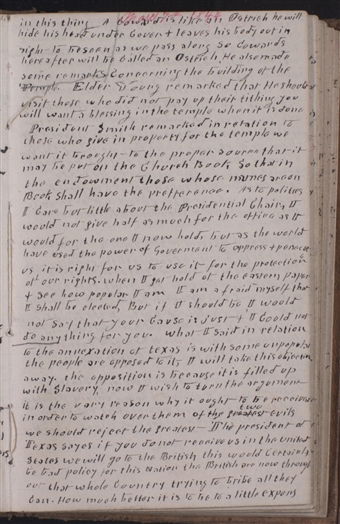 in this thing A Coward is like an Ostrich he will
hide his head under Cover & leaves his body out in
right to be seen as we pass along So Cowards
hereafter will be Called an Ostrich, He also made
some remarks Concerning the building of the
Temple. Elder Young remarked that He should
visit those who did not pay up their tithing you
will want a blessing in the temple when it is done
President Smith remarked in relation to
those who give in property for the temple we
want it brought to the proper source that it
may be put on the Church Book, So that in
the endowment those whose names are on
Book shall have the prefference. As to politics
I Care but little about the Presidential Chair, I
would not give half as much for the office as I
would for the one I now hold, but as the world
have used the power of Goverment to oppress & persecute
us, it is right for us to use it for the protection
of our rights. when I get hold of the eastern papers
& see how popular I am I am afraid myself that
I shall be elected, But if I should be I would
not say that your Cause is just & I Could not
do any thing for you. what I said in relation
to the annexation of texas is with some unpopular
the people are opposed to it, I will take this objection
away. the oppositions is because it is filled up
with Slavery. now I wish to turn the argument
It is the very reason why it ought to be received
in order to watch over them of the two evils
we should reject the greatest. The president of
Texas sayes if you do not receive us in the united
States we will go to the British this would Certainly
be bad policy for this nation the British are now through
out that whole Country trying to bribe all they
Can. How much better it is to be to a little expens